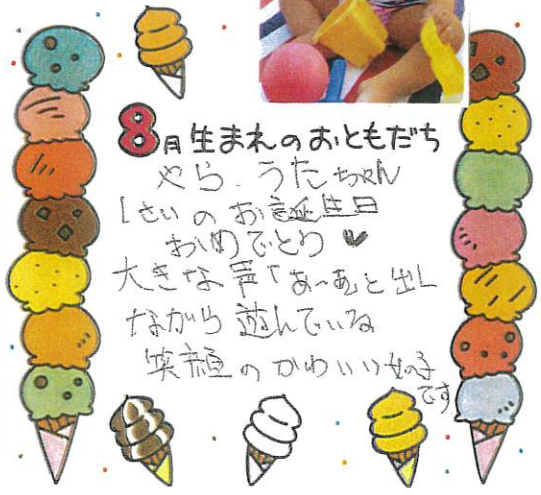 8月生まれのおともだち
やら うたちゃん
1さいのお誕生日
おめでとう♥
大きな声「あ～あ」と出し
ながら遊んでいる
笑顔のかわいい女の子
です